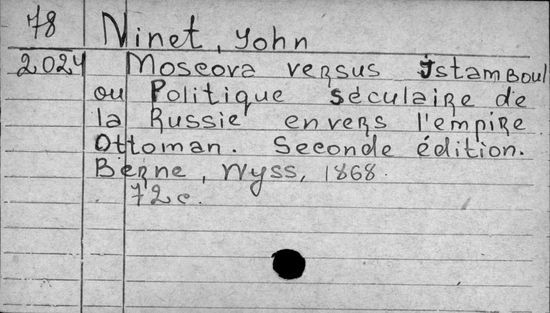 78
Ninet, John
2024
Moscova versus Istamboul
ou Politique séculaire de
la Russie envers l'empire
Ottoman. Seconde édition.
Berne, Wyss, 1868.
72 c.